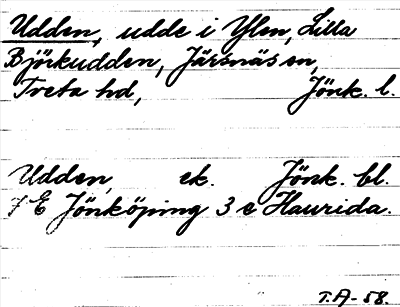 Udden, udde i Ylen, Lilla
Björkudden, Järsnäs sn,
Tveta hd, Jönk. l.
Udden, ek. Jönk. bl.
7 E Jönköping 3 e Haurida.
T.A-58.